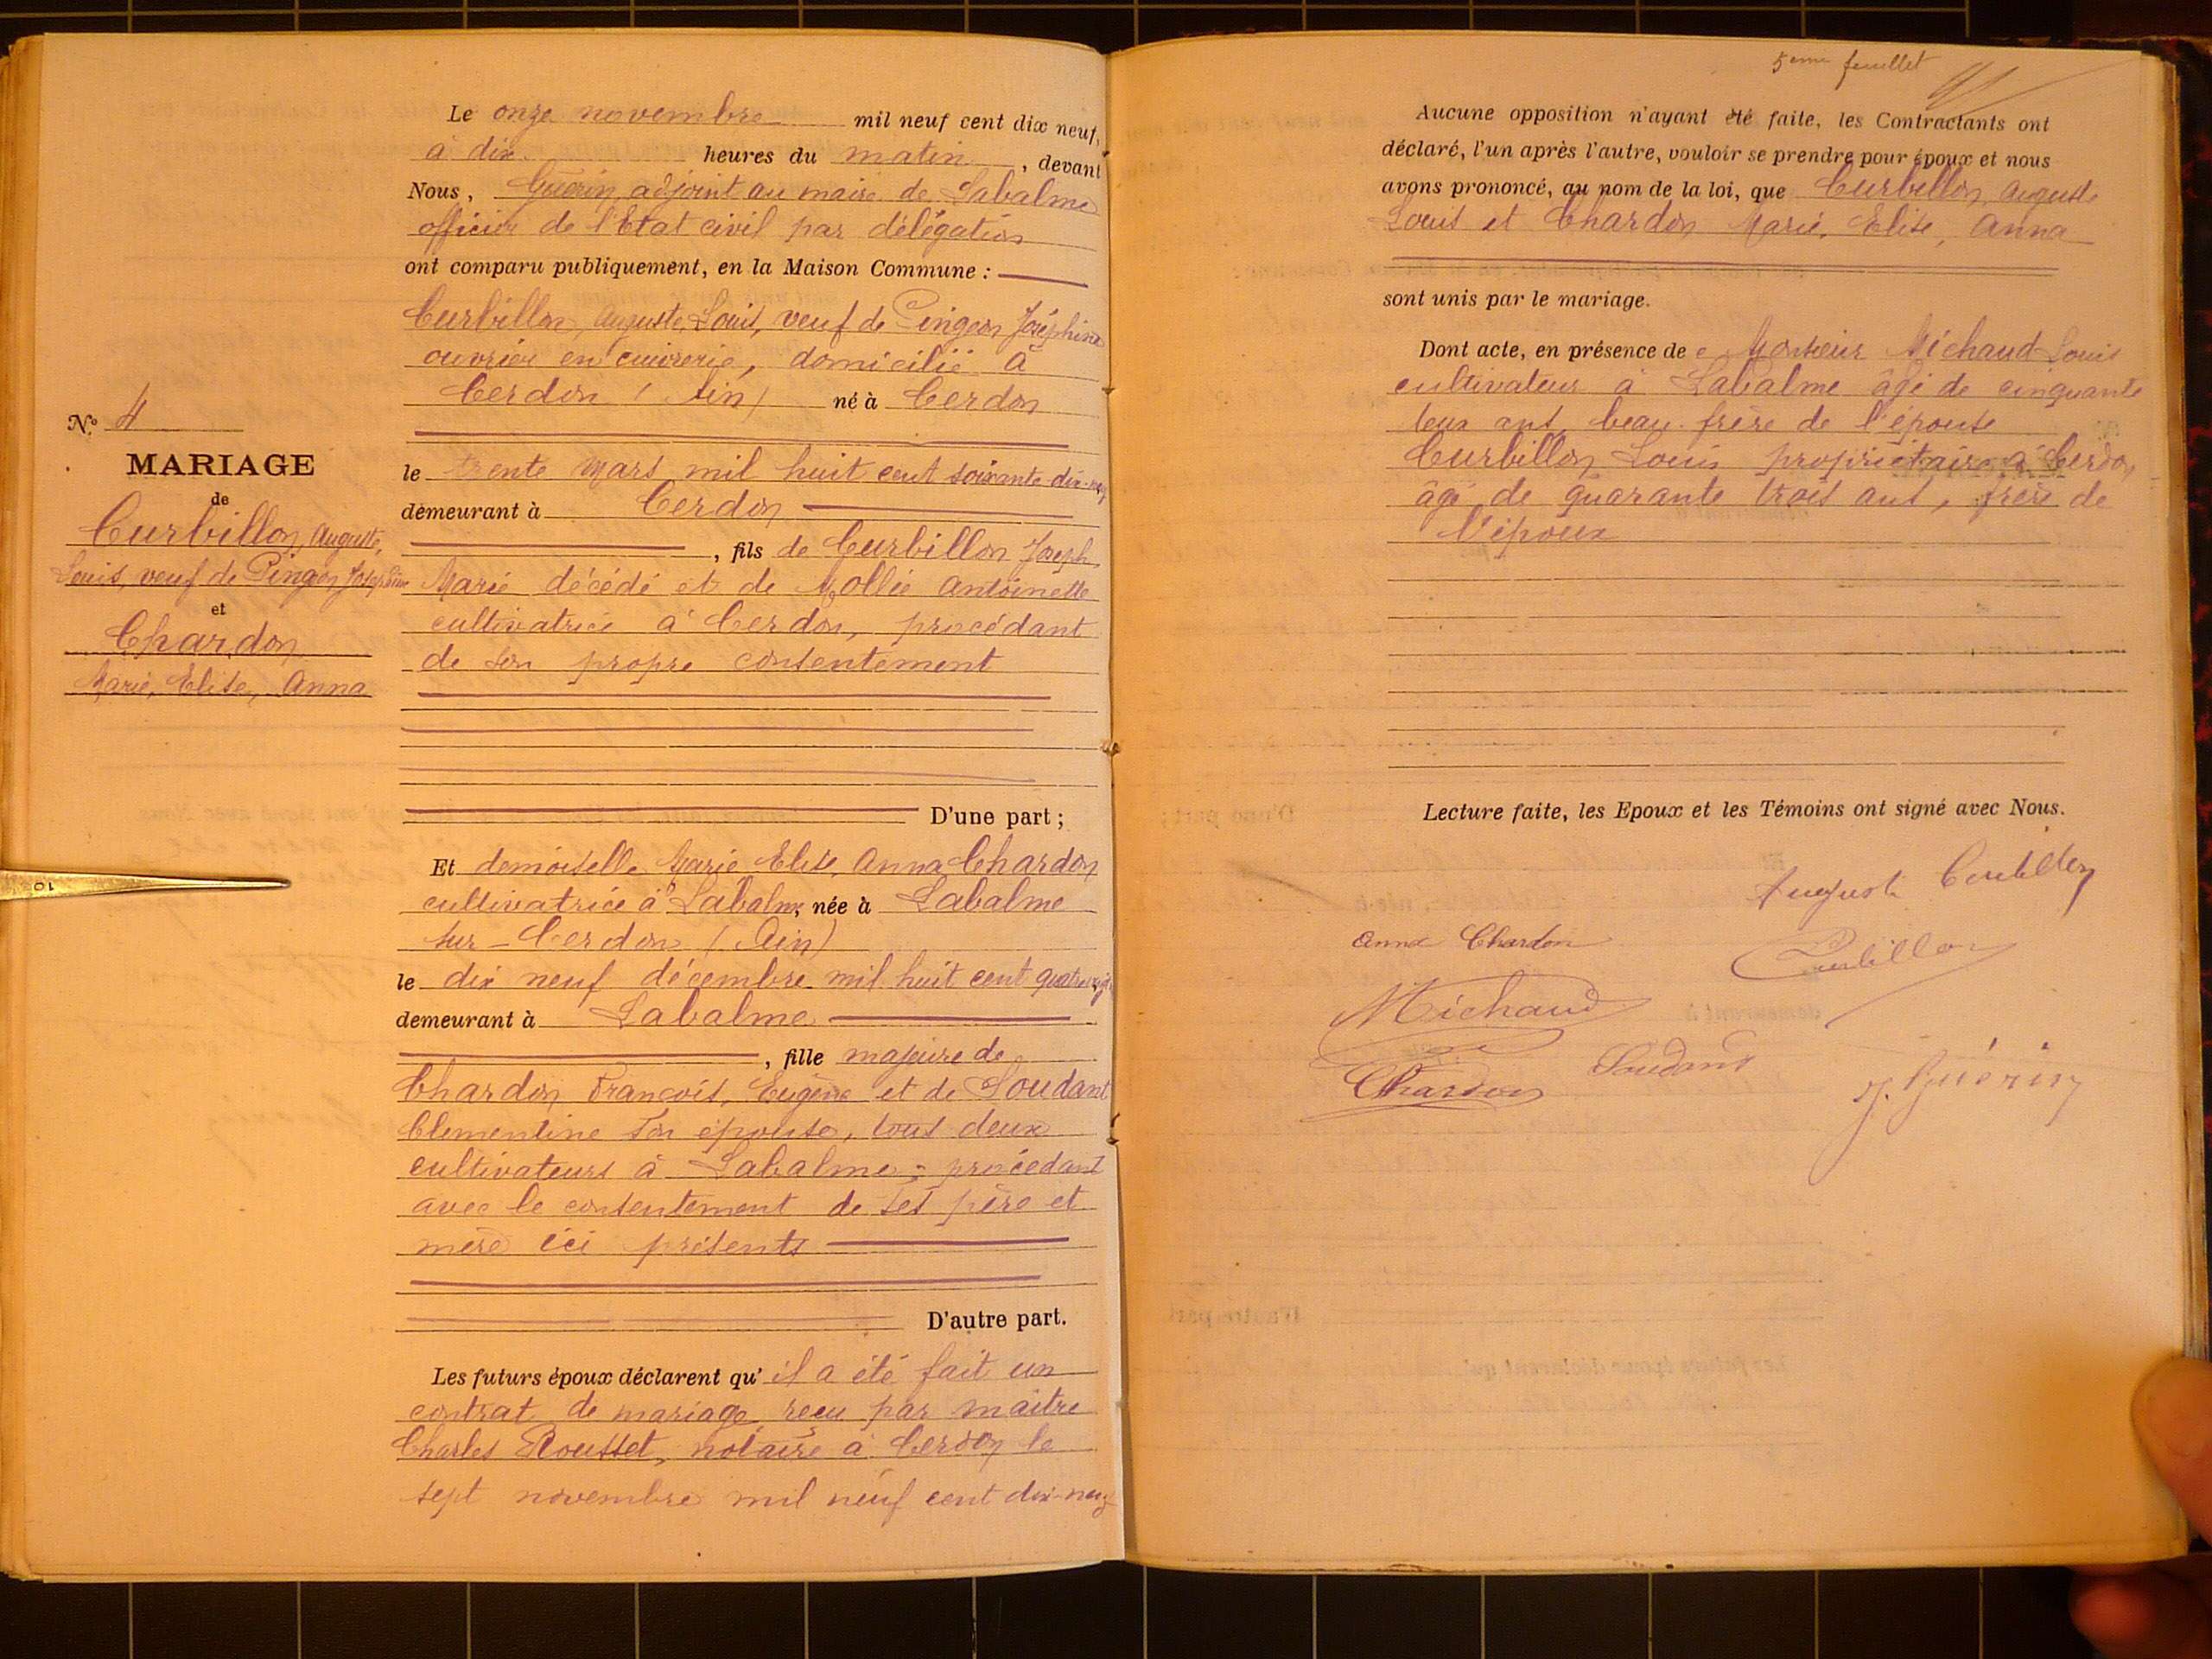 Le onze novembre mil neuf cent dix neuf,
à dix heures du matin, devant
Nous, Guérin, adjoint au maire de Labalme
officier de l'Etat civil par délégation
ont comparu publiquement, en la Maison Commune :
Curbillon, Auguste, Louis, veuf de Pingeon Joséphine
ouvrier en cuivrerie, domicilié à
Cerdon (Ain) né à Cerdon
le trente Mars mil huit cent soixante-dix-
demeurant à Cerdon
, fils de Curbillon Joseph,
Marie décédé et de Mollié Antoinette
cultivatrice à Cerdon, procédant
de son propre consentement
D'une part ;
Et demoiselle Marie Elise, Anna Chardon
cultivatrice à Labalme, née à Labalme
sur-Cerdon (Ain)
le dix neuf décembre mil huit cent quatre vingt
demeurant à Labalme
, fille majeure de
Chardon François, Eugène et de Soudant
Clementine son épouse, tous deux
cultivateurs à Labalme ; procédant
avec le consentement de ses père et
mère ici présents
D'autre part.
Les futurs époux déclarent qu' il a été fait un
contrat de mariage reçu par maitre
Charles Rousset, notaire à Cerdon le
sept novembre mil neuf cent dix-neuf
N° 4
MARIAGE
de
Curbillon, Auguste,
Louis, veuf de Pingeon Joséphine
et
Chardon
Marie, Elise, Anna
5eme feuillet
Aucune opposition n'ayant été faite, les Contractants ont
déclaré, l'un après l'autre, vouloir se prendre pour époux et nous
avons prononcé, au nom de la loi, que Curbillon, Auguste
Louis et Chardon Marie, Elise, Anna
sont unis par le mariage.
Dont acte, en présence de Monsieur Michaud Louis
cultivateur à Labalme âgé de cinquante
deux ans, beau-frère de l'épouse
Curbillon Louis propriétaire à Cerdon,
âgé de quarante trois ans, frère de
l'époux
Lecture faite, les Epoux et les Témoins ont signé avec Nous.
Auguste Curbillon
Anna Chardon
Curbillon
Michaud
Soudant
Chardon
J. Guérin